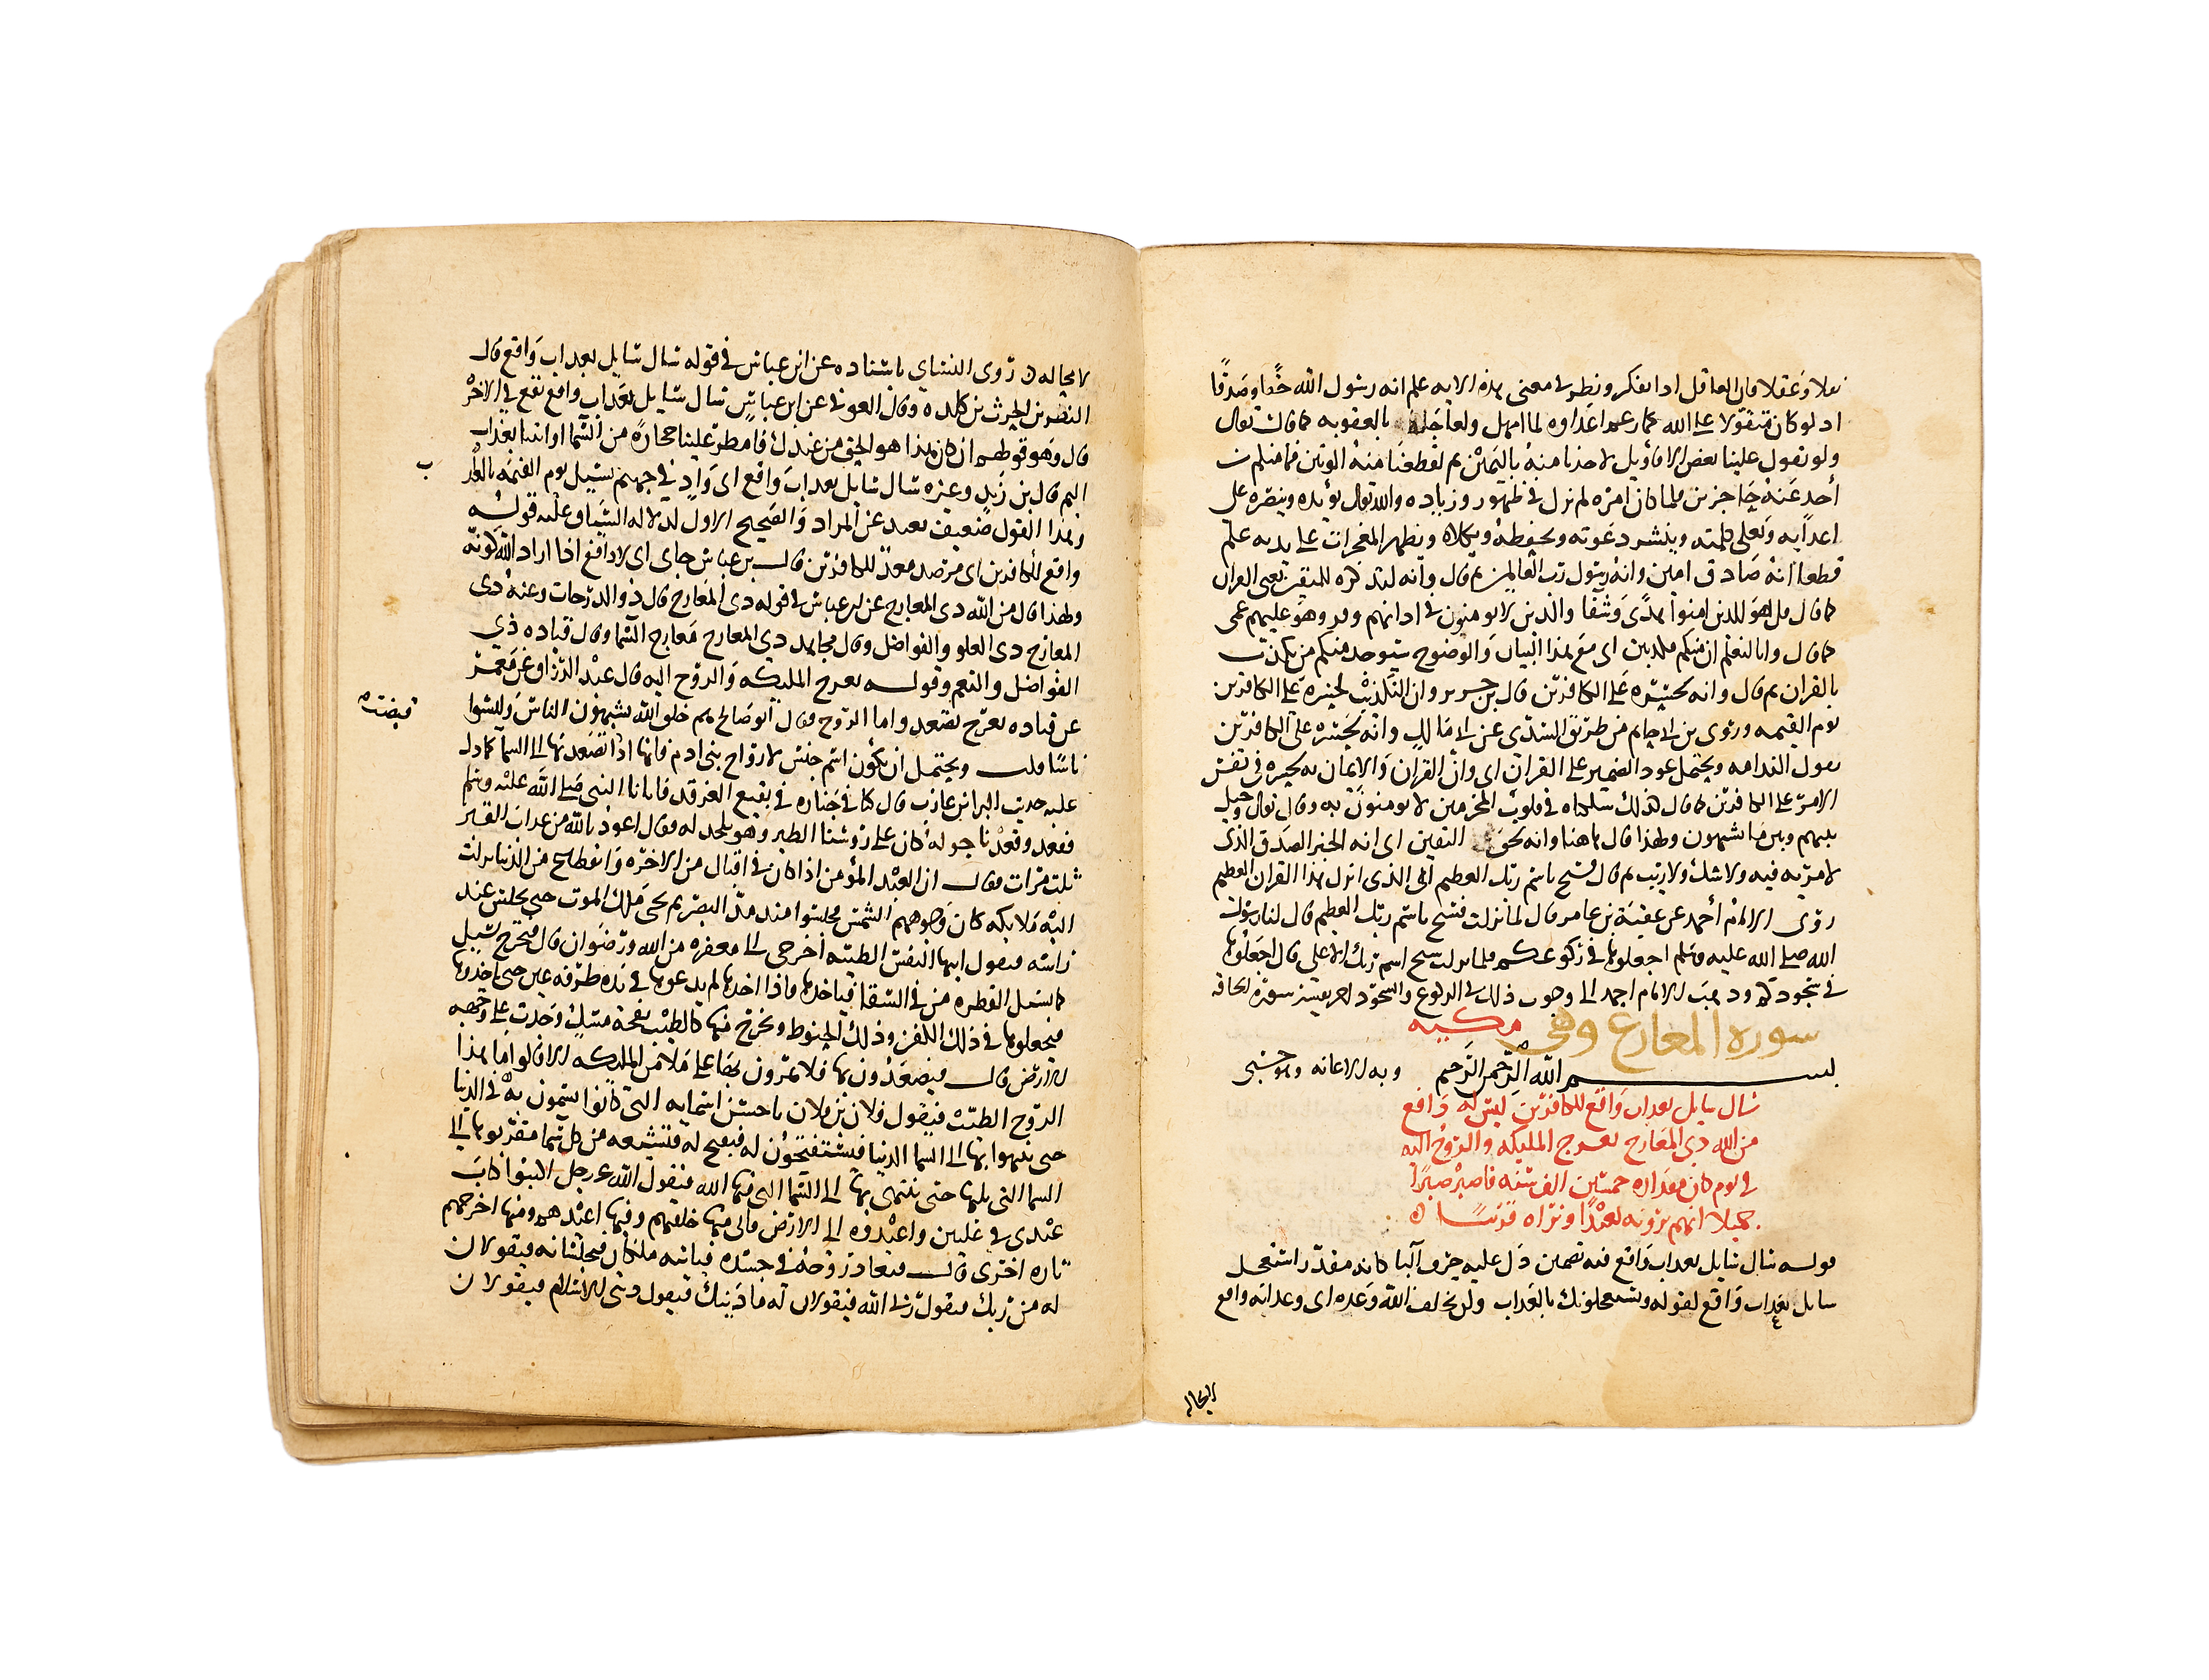 نقلا وعقلا فان العاقل اذا تفكر ونظر في معنى هذه الايه علم انه رسول الله حقا وصدقا
اذ لو كان متقولا على الله كما زعم اعداوه لما امهل ولعاجله بالعقوبه كما قال تعالى
ولو تقول علينا بعض الاقاويل لاخذنا منه باليمين ثم لقطعنا منه الوتين فما منكم من
أحد عنه حاجزين فلما كان امره لم يزل في ظهور وزياده والله تعالى يؤيده وينصره على
اعدائه ويعلي كلمته وينشر دعوته ويحفظه ويكلاه ويظهر المعجزات على يديه علم
قطعا انه صادق امين وانه رسول رب العالمين ثم قال وانه لتذكره للمتقين يعنى القران
كما قال قل هو للذين امنوا هدى وشفا والذين لا يومنون في اذانهم وقر وهو عليهم عمى
كما قال وانا لنعلم ان منكم مكذبين اى مع هذا البيان والوضوح سيوجد منكم من يكذب
بالقران ثم قال وانه لحسره على الكافرين قال بن جرير وان التكذيب لحسره على الكافرين
يوم القيمه وروى بن ابي حاتم من طريق السدى عن ابي مالك وانه لحسره على الكافرين
يقول الندامه ويحتمل عود الضمير على القران اى وان القران والايمان به لحسره في نفس
الامر على الكافرين كما قال كذلك سلكناه في قلوب المجرمين لا يومنون به وقال تعالى وحيل
بينهم وبين ما يشتهون ولهذا قال هاهنا وانه لحق اليقين اى انه الخبر الصدق الذى
لا مريه فيه ولا شك ولا ريب ثم قال فسبح باسم ربك العظيم اى الذى انزل هذا القران العظيم
روى الامام أحمد عن عقبة بن عامر قال لما نزلت فسبح باسم ربك العظيم قال لنا رسول
الله صلى الله عليه وسلم اجعلوها في ركوعكم فلما نزلت سبح اسم ربك الاعلى قال اجعلوها
في سجودكم وذهب الامام احمد الى وجوب ذلك في الركوع والسجود اخر تفسير سورة الحاقه
سوره المعارج وهى مكيه
بسم الله الرحمن الرحيم وبه الاعانه وهو حسبي
سال سايل بعداب واقع للكافرين ليس له دافع
من الله ذي المعارج تعرج المليكه والروح اليه
في يوم كان مقداره خمسين الف سنه فاصبر صبرا
جميلا انهم يرونه بعيدا ونراه قريبا
قوله سال سايل بعداب واقع فيه تضمين دل عليه حرف البا كانه مقدر استعجل
سايل بعداب واقع لقوله ويستعجلونك بالعداب ولن يخلف الله وعده اى وعدابه واقع
لا محاله
لا محاله روى النساي باسناده عن ابن عباس في قوله سال سايل بعداب واقع قال
النضر بن الحرث بن كلده وقال العوفي عن ابن عباس سال سايل بعداب واقع يقع في الاخره
قال وهو قولهم ان كان هذا هو الحق من عندك فامطر علينا حجارة من السما او ائتنا بعذاب
اليم قال بن زيد وغيره سال سايل بعداب واقع اى واد في جهنم يسيل يوم القيمه بالعذاب
وهذا القول ضعيف بعيد عن المراد والصحيح الاول لدلاله السياق عليه قوله
واقع للكافرين اى مرصد معد للكافرين قال بن عباس جاى اى لا دافع اذا اراد الله كونه
ولهذا قال من الله ذى المعارج عن ابن عباس في قوله ذى المعارج قال ذو الدرجات وعنه ذى
المعارج ذى العلو والفواضل وقال مجاهد ذي المعارج معارج السما وقال قتاده ذي
الفواضل والنعم وقوله تعرج المليكه والروح اليه قال عبد الرزاق عن معمر
عن قتاده تعرج تصعد واما الروح فقال أبو صالح هم خلق الله يشبهون الناس وليسوا
ناسا قلت ويحتمل ان يكون اسم جنس لارواح بنى ادم فانها اذا
قبضت
تصعد بها الى السما كما دل
عليه حديث البرا بن عازب قال كنا في جنازه في بقيع الغرقد فاتانا النبى صلى الله عليه وسلم
فقعد وقعدنا حوله كان على روسنا الطير وهو يلحد له فقال اعوذ بالله من عذاب القبر
ثلث مرات فقال ان العبد المؤمن اذا كان في اقبال من الاخره وانقطاع من الدنيا نزلت
اليه ملايكه كان وجوههم الشمس فجلسوا منه مد البصر ثم يجى ملك الموت حتى يجلس عند
راسه فيقول ايتها النفس الطيبه أخرجى الى مغفره من الله ورضوان قال فتخرج تسيل
كما تسيل القطره من في السقا فياخدها فاذا اخدها لم يدعوها في يده طرفه عين حتى ياخدوها
فيجعلوها في ذلك الكفن وذلك الحنوط ويخرج منها كاطيب نفحة مسك وجدت على وجه
الارض قال فيصعدون بها فلا يمرون بها على ملا من المليكه الا قالوا ما هذا
الروح الطيب فيقول فلان بن فلان باحسن اسمايه التى كانوا يسمونه به في الدنيا
حتى ينتهوا بها الى السما الدنيا فيستفتحون له فيفتح له فيشيعه من كل سما مقربوها الى
السما التى يليها حتى ينتهى بها الى السما التى فيها الله فيقول الله عز وجل اكتبوا كتاب
عبدى في عليين واعيدوه الى الارض فانى منها خلقتهم وفيها اعيدهم ومنها اخرجهم
تاره اخرى قال فيعاد روحه في جسده فياتيه ملكان فيجلسانه فيقولان
له من ربك فيقول ربى الله فيقولان له ما دينك فيقول دينى الاسلام فيقولان